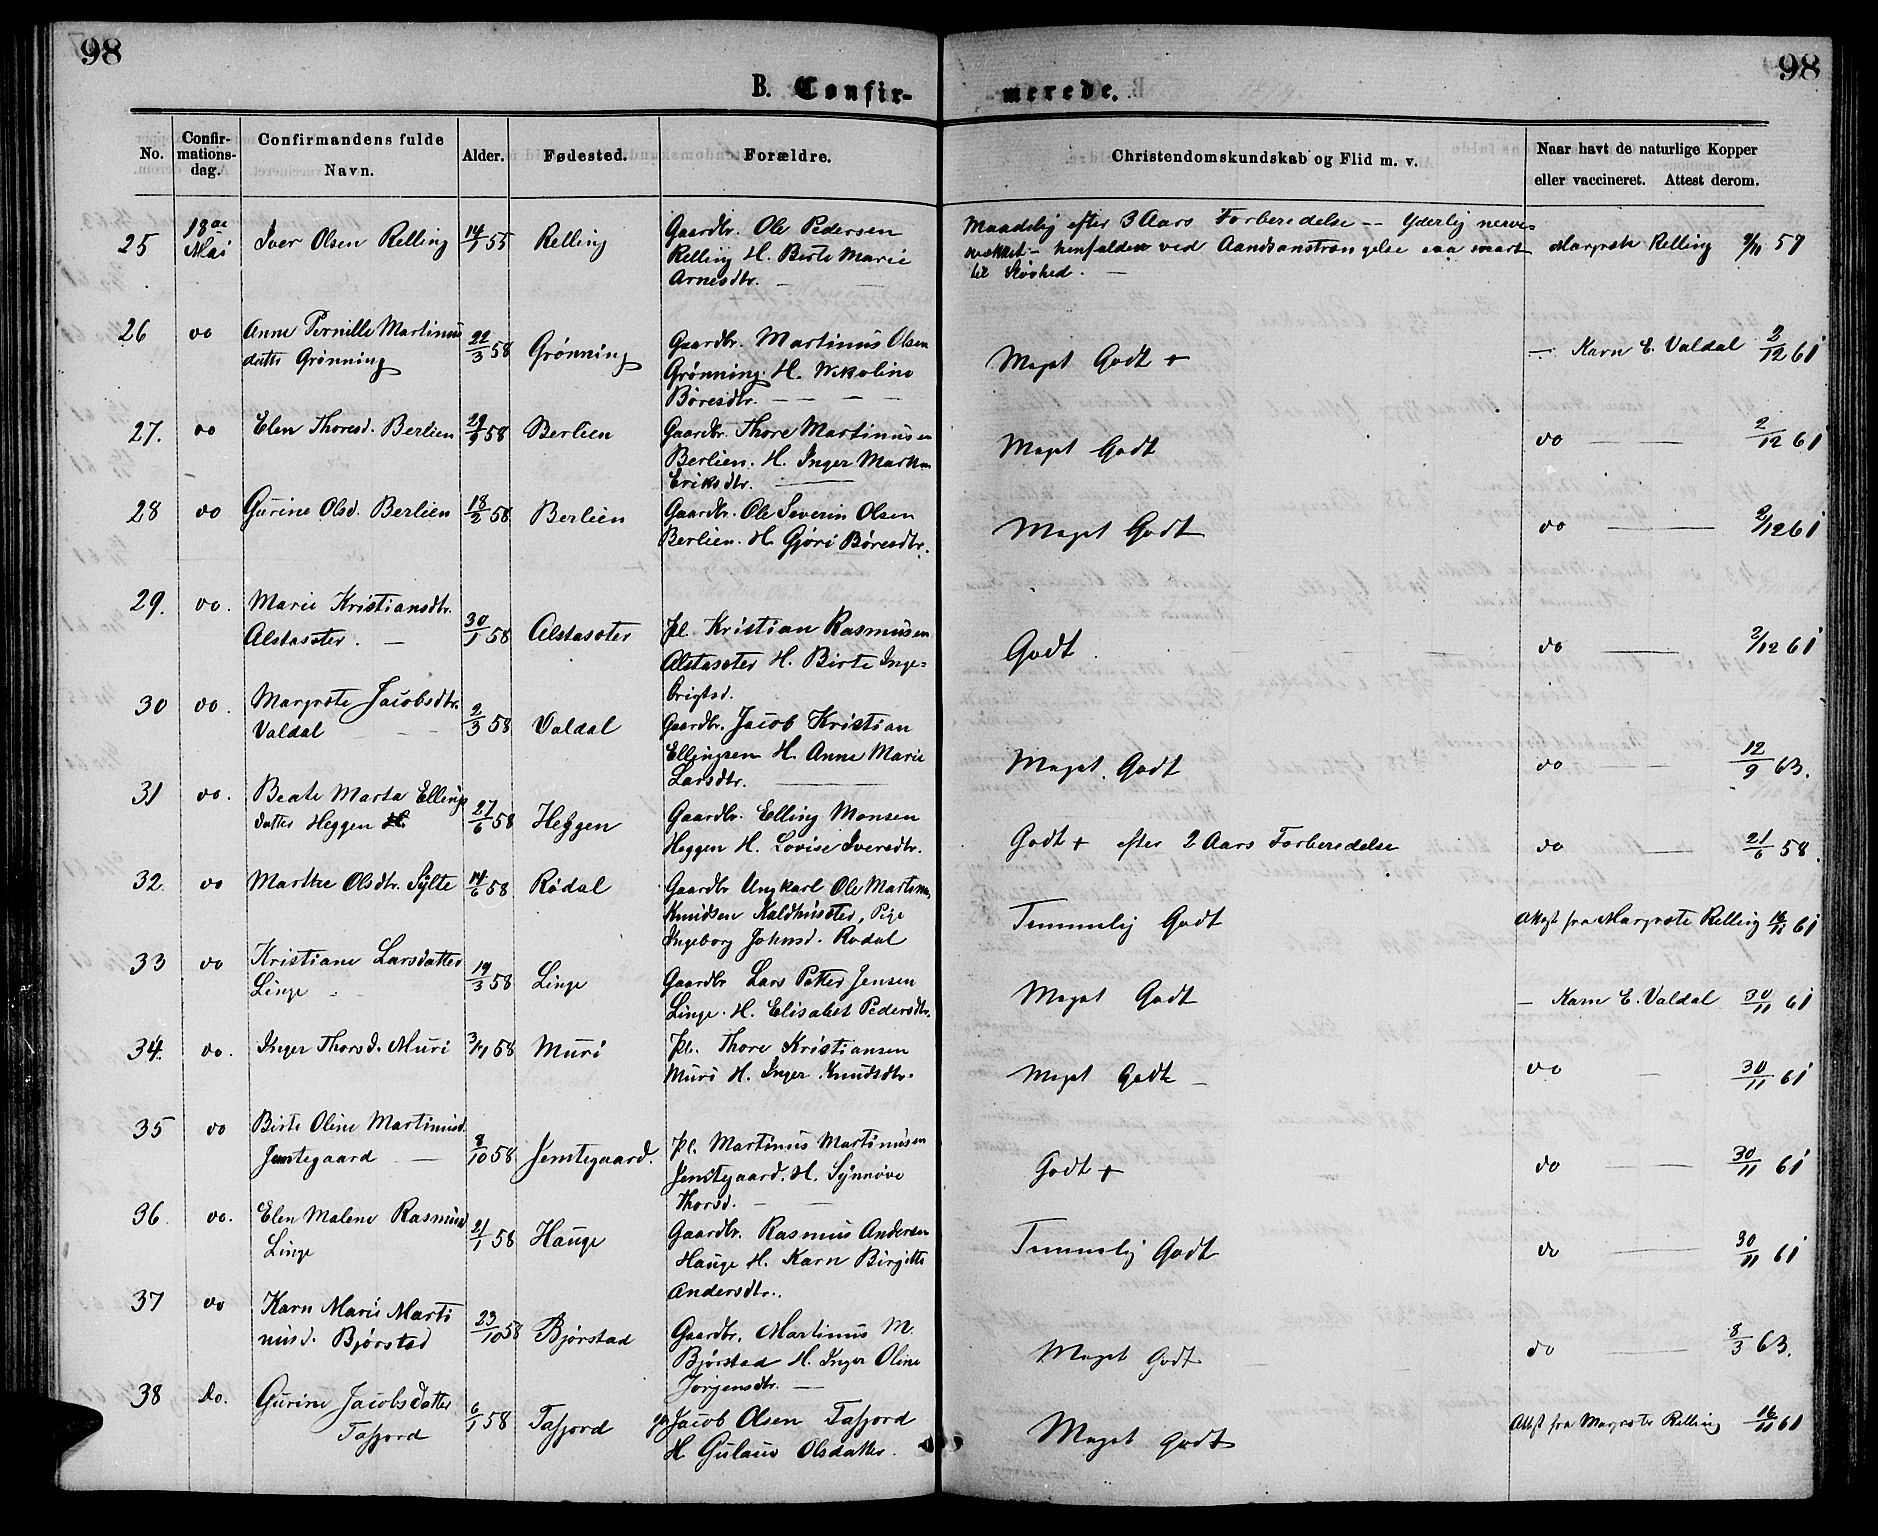 98
98
B. Confir-
merede.
No.
Confir-
mations-
dag.
Confirmandens fulde
Navn.
Alder.
Fødested.
Forældre.
Christendomskundskab og Flid m. v.
Naar havt de naturlige Kopper
eller vaccineret. Attest derom.
25 18de Mai Iver Olsen Relling 14/1 55 Relling
Gaardbr. Ole Pedersen
Relling H. Birte Marie
Arnesdtr.
Maadelig efter 3 Aars Forberedelse -- Yderlig nerve-
svækket - henfalden ved Aandsanstrengelse saa snart
til Sløvhed. -
Margrete Relling 9/11 57
26 do Anne Pernille Martinus
datter Grønning 22/3 58 Grønning
Gaardbr. Martinus Olsen
Grønning. H. Nikoline
Børesdtr.
Meget Godt +
- Karn E. Valdal 2/12 61
27. do Elen Thoresd. Berlien 29/9 58 Berlien
Gaardbr. Thore Martinusen
Berlien. H. Inger Marthe
Eriksdtr.
Meget Godt
do 2/12 61
28 do Gurine Olsd. Berlien 18/2 58 Berlien
Gaardbr. Ole Severin Olsen
Berlien. H Gjøri Børesdtr.
Meget Godt
do 2/12 61
29. do. Marie Kristiansdtr.
Alstasæter. 30/1 58 Alstasæter
Pl. Kristian Rasmusen
Alstasæter H. Birte Inge-
brigtsd.
Godt.
do 2/12 61
30 do. Margrete Jacobsdtr.
Valdal 2/3 58 Valdal
Gaardbr. Jacob Kristian
Ellingsen H. Anne Marie
Larsdtr.
Meget Godt
do 12/9 63.
31 do. Beate Marta Ellings
datter Heggen 27/6 58 Heggen
Gaardbr. Elling Monsen
Heggen H. Lovise Iversdtr.
Godt + efter 2 Aars Forberedelse
do 21/6 58.
32. do Marthe Olsdtr. Sylte 14/6 58 Rødal
Gaardbr Ungkarl Ole Martinus
Knudsen Kaldhusæter, Pige
Ingeborg Johnsd. Rødal
Temmelig Godt
Attest fra Margrete Relling 16/11 61
33 do Kristiane Larsdatter
Linge 19/3 58 Linge
Gaardbr Lars Petter Jensen
Linge. H. Elisabet Pedersdtr.
Meget Godt
- Karn E. Valdal 30/11 61
34. do. Inger Thorsd. Muri 3/11 58 Muri
Pl. Thore Kristiansen
Muri H. Inger Knudsdtr.
Meget Godt -
do 30/11 61
35 do Birte Oline Martinusd.
Jemtegaard 8/10 58 Jemtegaard.
Pl. Martinus Martinusen
Jemtegaard. H. Synnøve
Thorsd.
Godt +
do 30/11 61
36. do. Elen Malene Rasmusd
Linge 21/1 58 Hauge
Gaardbr. Rasmus Andersen
Hauge H. Karn Birgitte
Andersdtr.
Temmelig Godt
do 30/11 61
37 do Karn Marie Marti
nusd. Bjørstad 23/10 58 Bjørstad
Gaardbr. Martinus M.
Bjørstad H. Inger Oline
Jørgensdtr.
Meget Godt
do 8/3 63.
38 do. Gurine Jacobsdatter
Tafjord 6/1 58 Tafjord
Jacob Olsen Tafjord
H Gulaug Olsdatter.
Meget Godt
Attest fra Margrete Relling 16/11 61